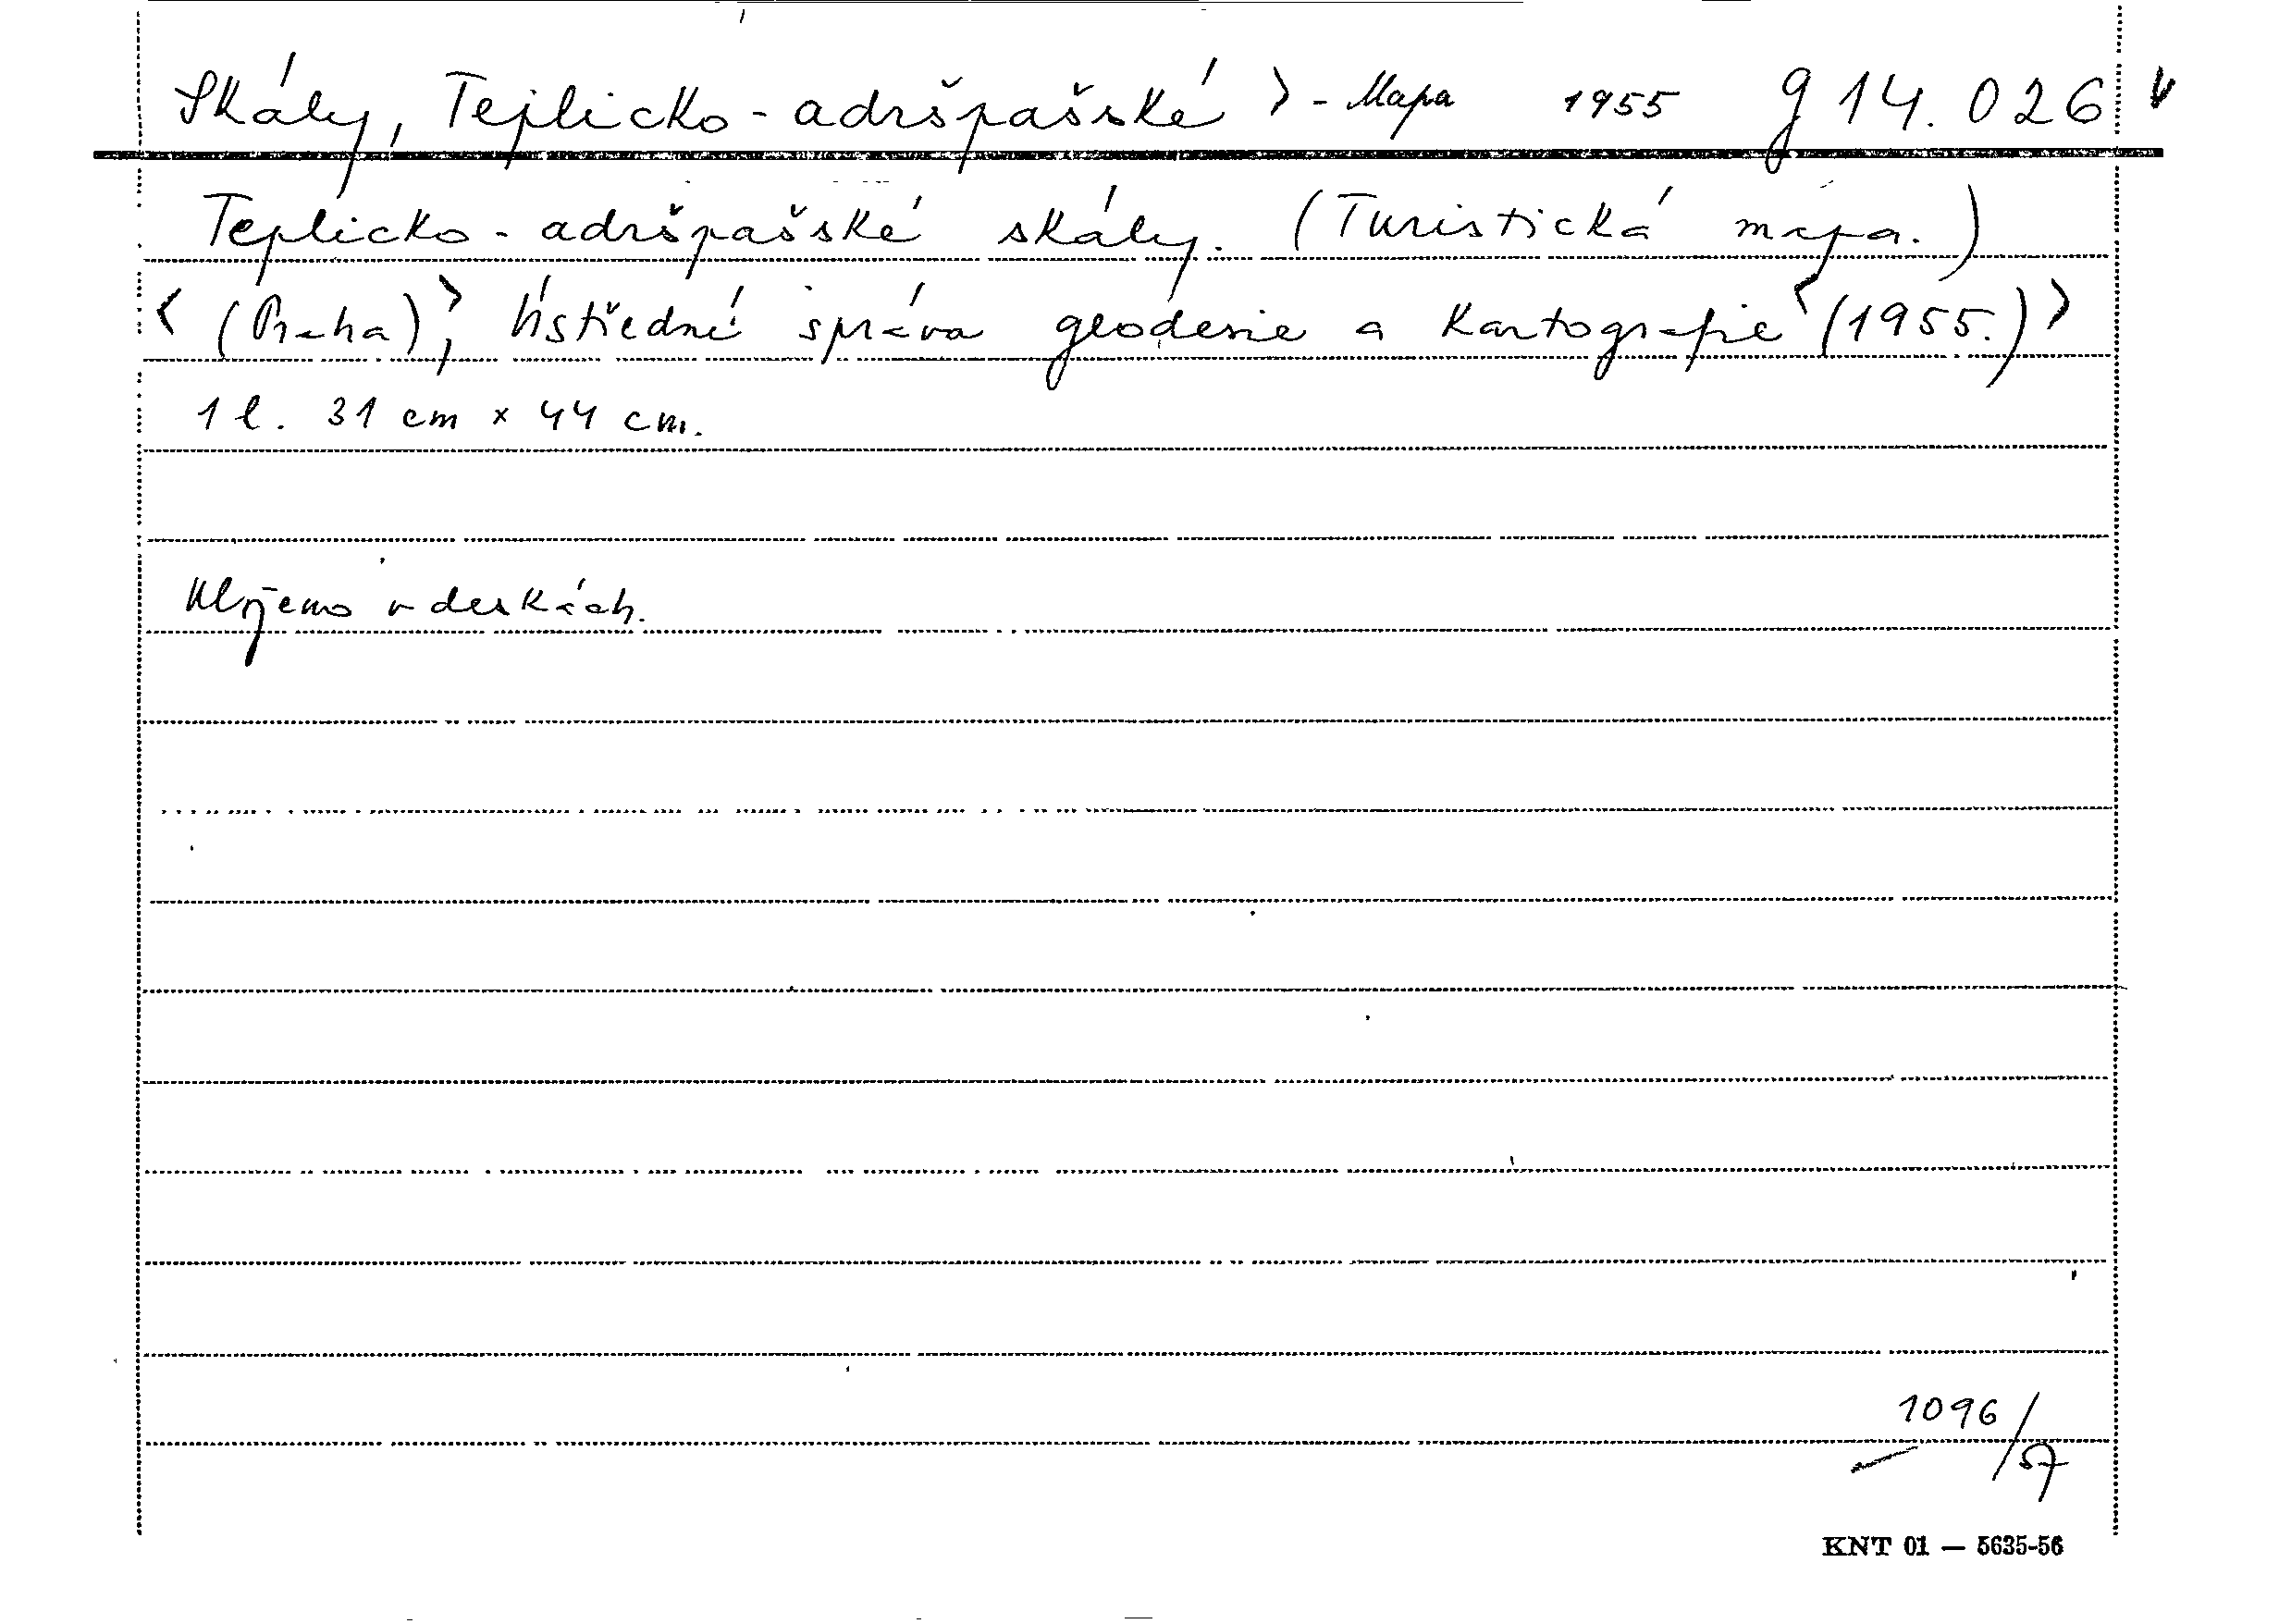 Skály, Teplicko-adršpašské > - Mapa 1955 g 14.026
Teplicko-adršpašské skály. (Turistická mapa.)
< (Praha), > Ústřední správa geodesie a kartografie < (1955.) >
1 l. 31 cm x 44 cm.
Klijemo v deskách.
1096/57
KNT 01 — 5635-56